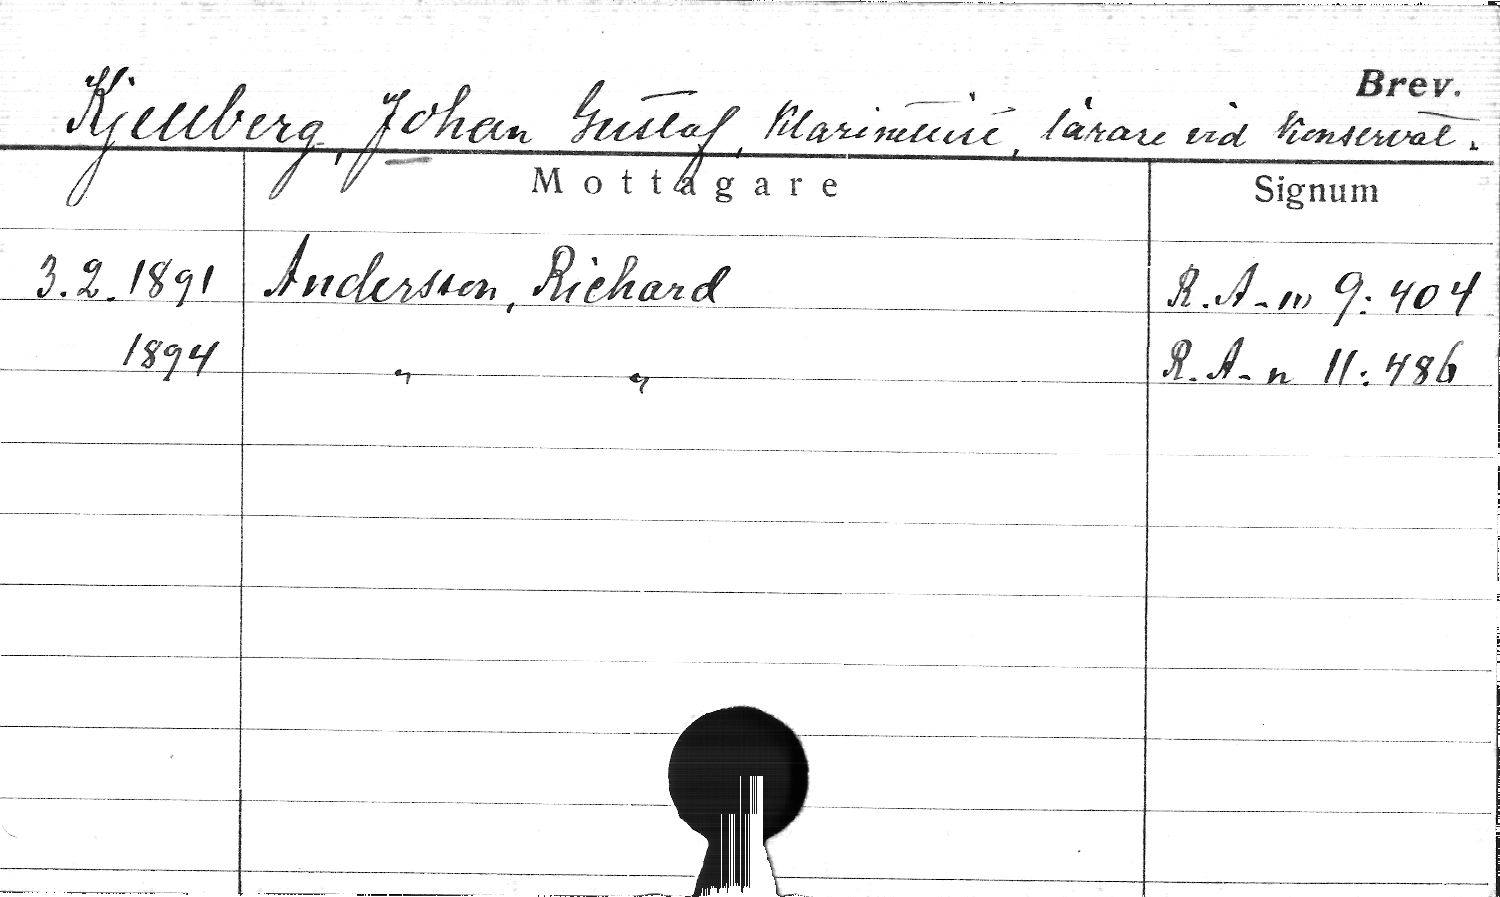 Brev.
Kjellberg, Johan Gustaf, Klarinettist, lärare vid Konservat.
Mottagare Signum
3.2.1891 Andersson, Richard R.A-n 9:404
1894 " " R.A-n 11:486